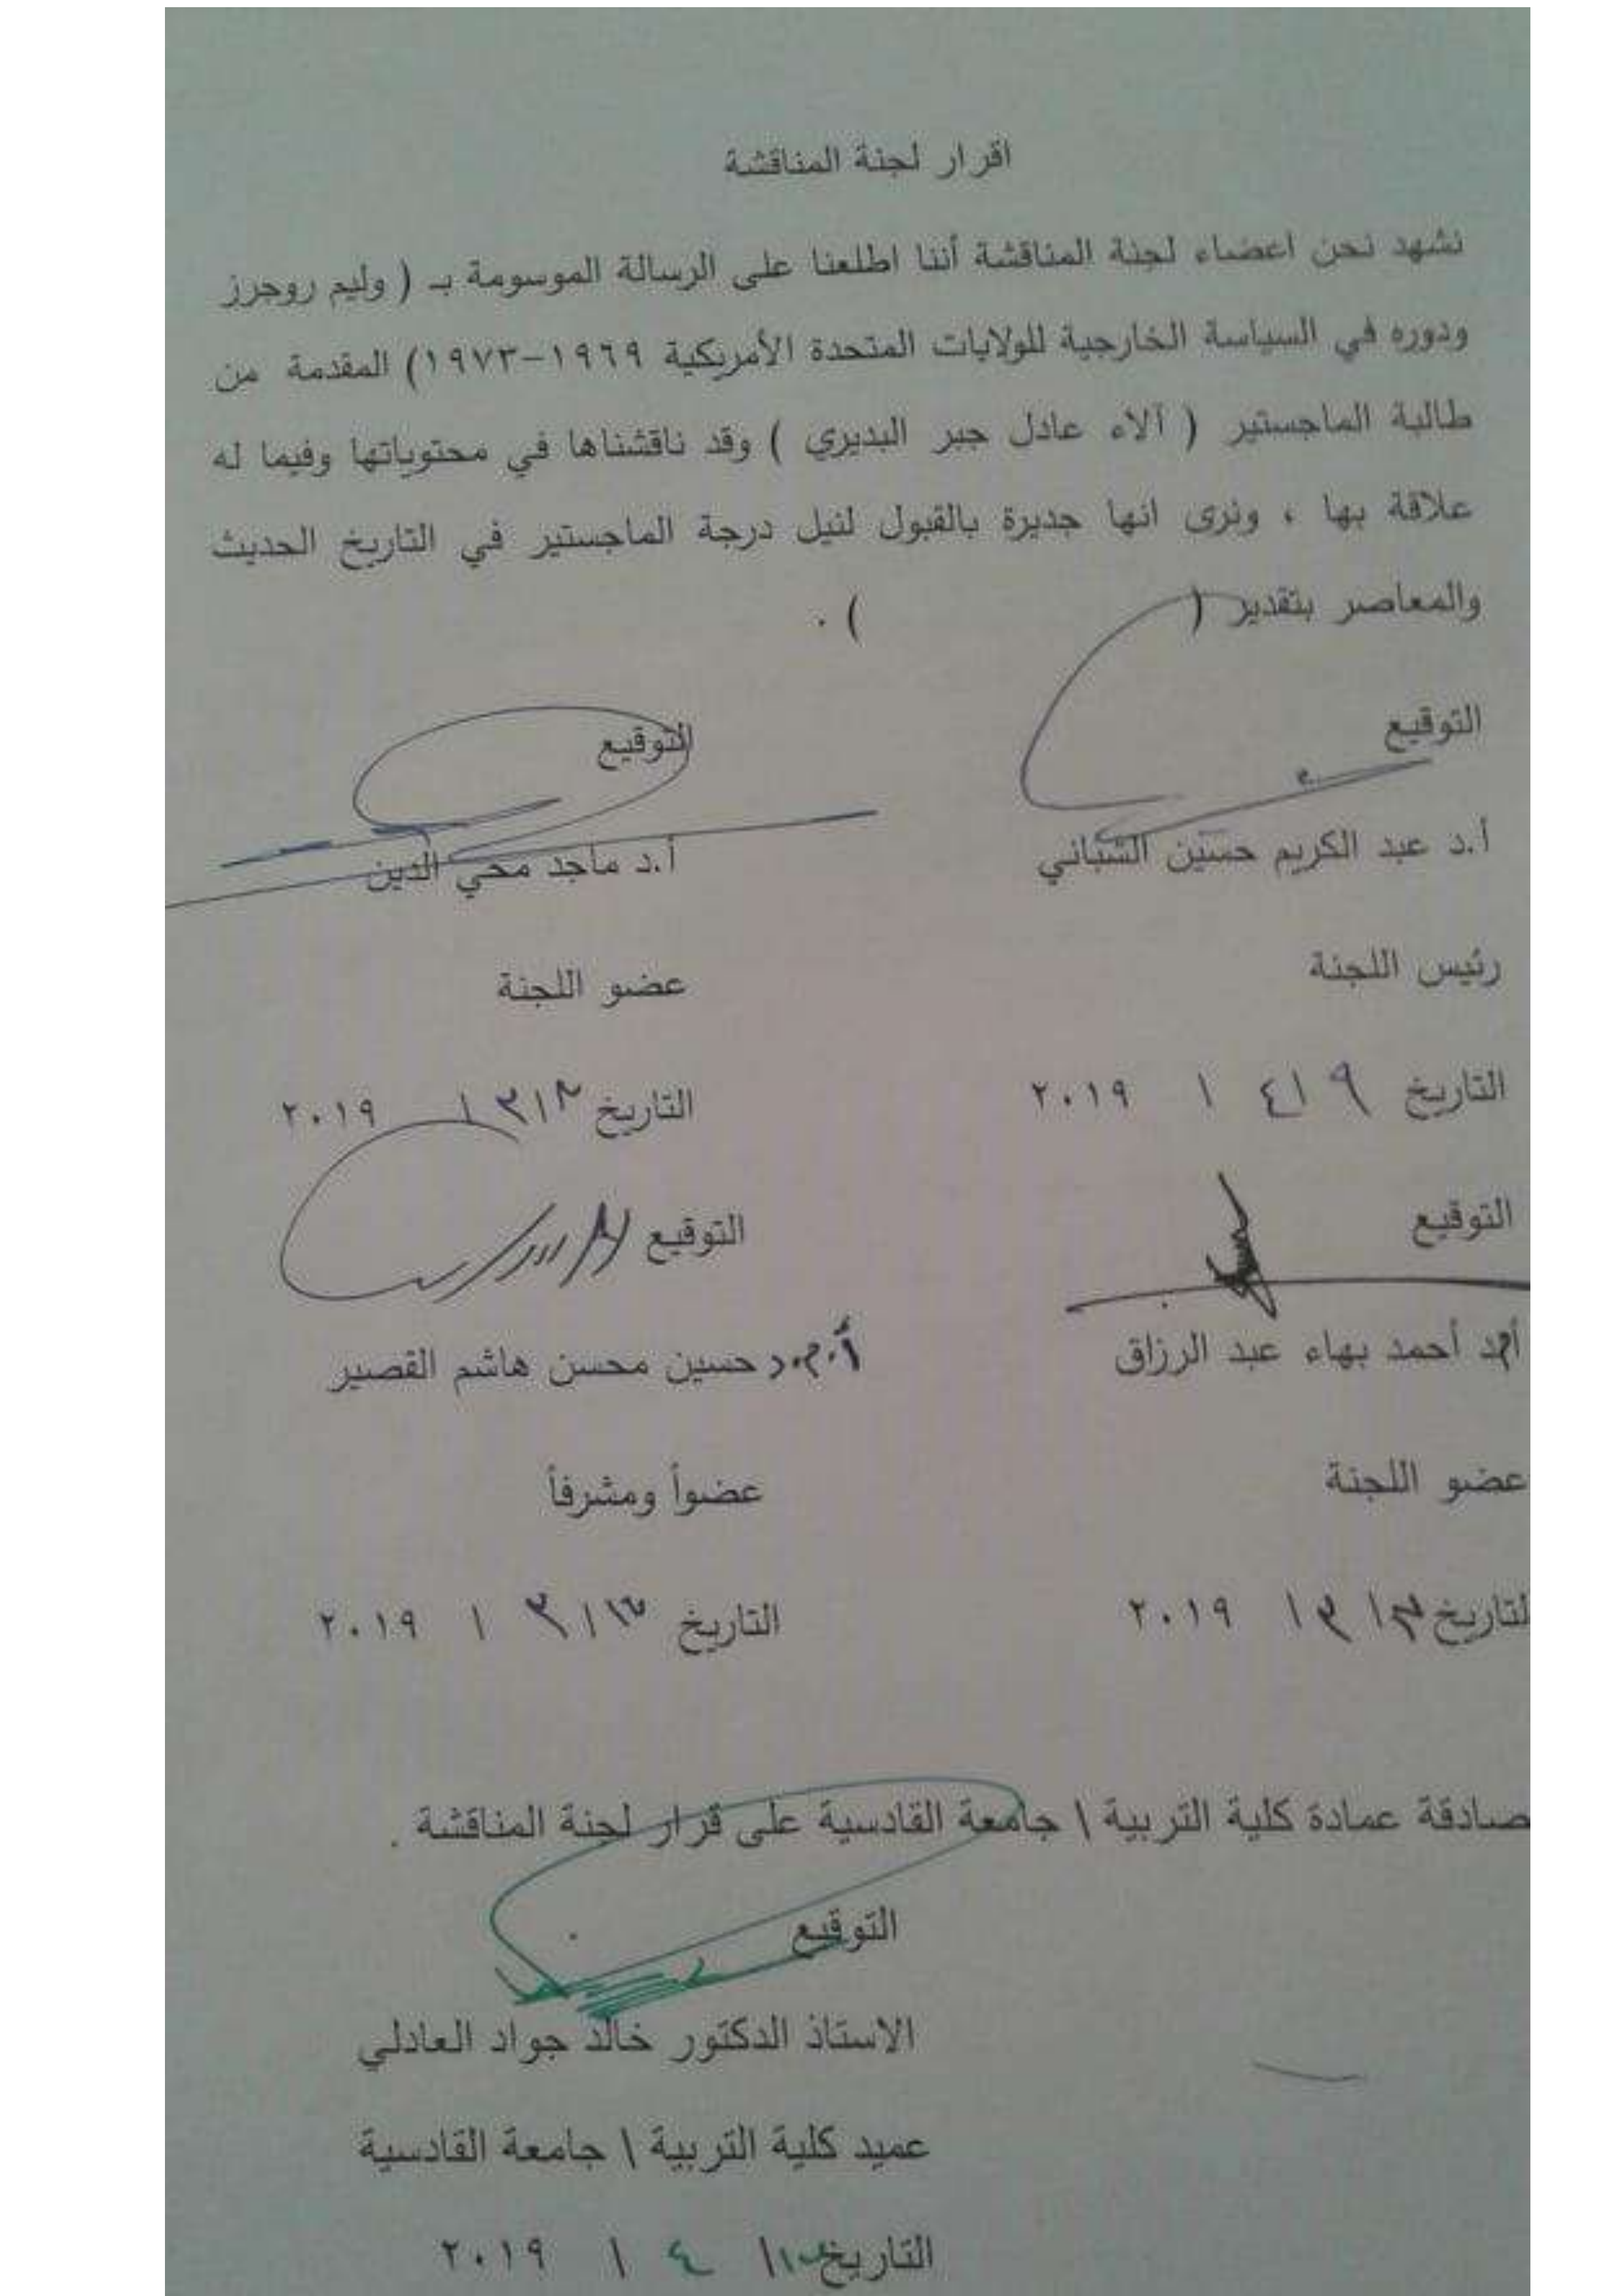 اقرار لجنة المناقشة
نشهد نحن اعضاء لجنة المناقشة أننا اطلعنا على الرسالة الموسومة بـ ( وليم روجرز
ودوره في السياسة الخارجية للولايات المتحدة الأمريكية ١٩٦٩–١٩٧٣) المقدمة من
طالبة الماجستير ( آلاء عادل جبر البديري ) وقد ناقشناها في محتوياتها وفيما له
علاقة بها ، ونرى انها جديرة بالقبول لنيل درجة الماجستير في التاريخ الحديث
والمعاصر بتقدير ( ) .
التوقيع
أ.د عبد الكريم حسين الشباني
رئيس اللجنة
التاريخ ٩ \ ٤ \ ٢٠١٩
التوقيع
أ.د ماجد محي الدين
عضو اللجنة
التاريخ \ ٢٠١٩
التوقيع
أحمد بهاء عبد الرزاق
عضو اللجنة
لتاريخ \ ٢٠١٩
التوقيع
أ.م.د حسين محسن هاشم القصير
عضواً ومشرفاً
التاريخ \ ٣ \ ٢٠١٩
صادقة عمادة كلية التربية \ جامعة القادسية على قرار لجنة المناقشة .
التوقيع
الاستاذ الدكتور خالد جواد العادلي
عميد كلية التربية \ جامعة القادسية
التاريخ \ ٤ \ ٢٠١٩